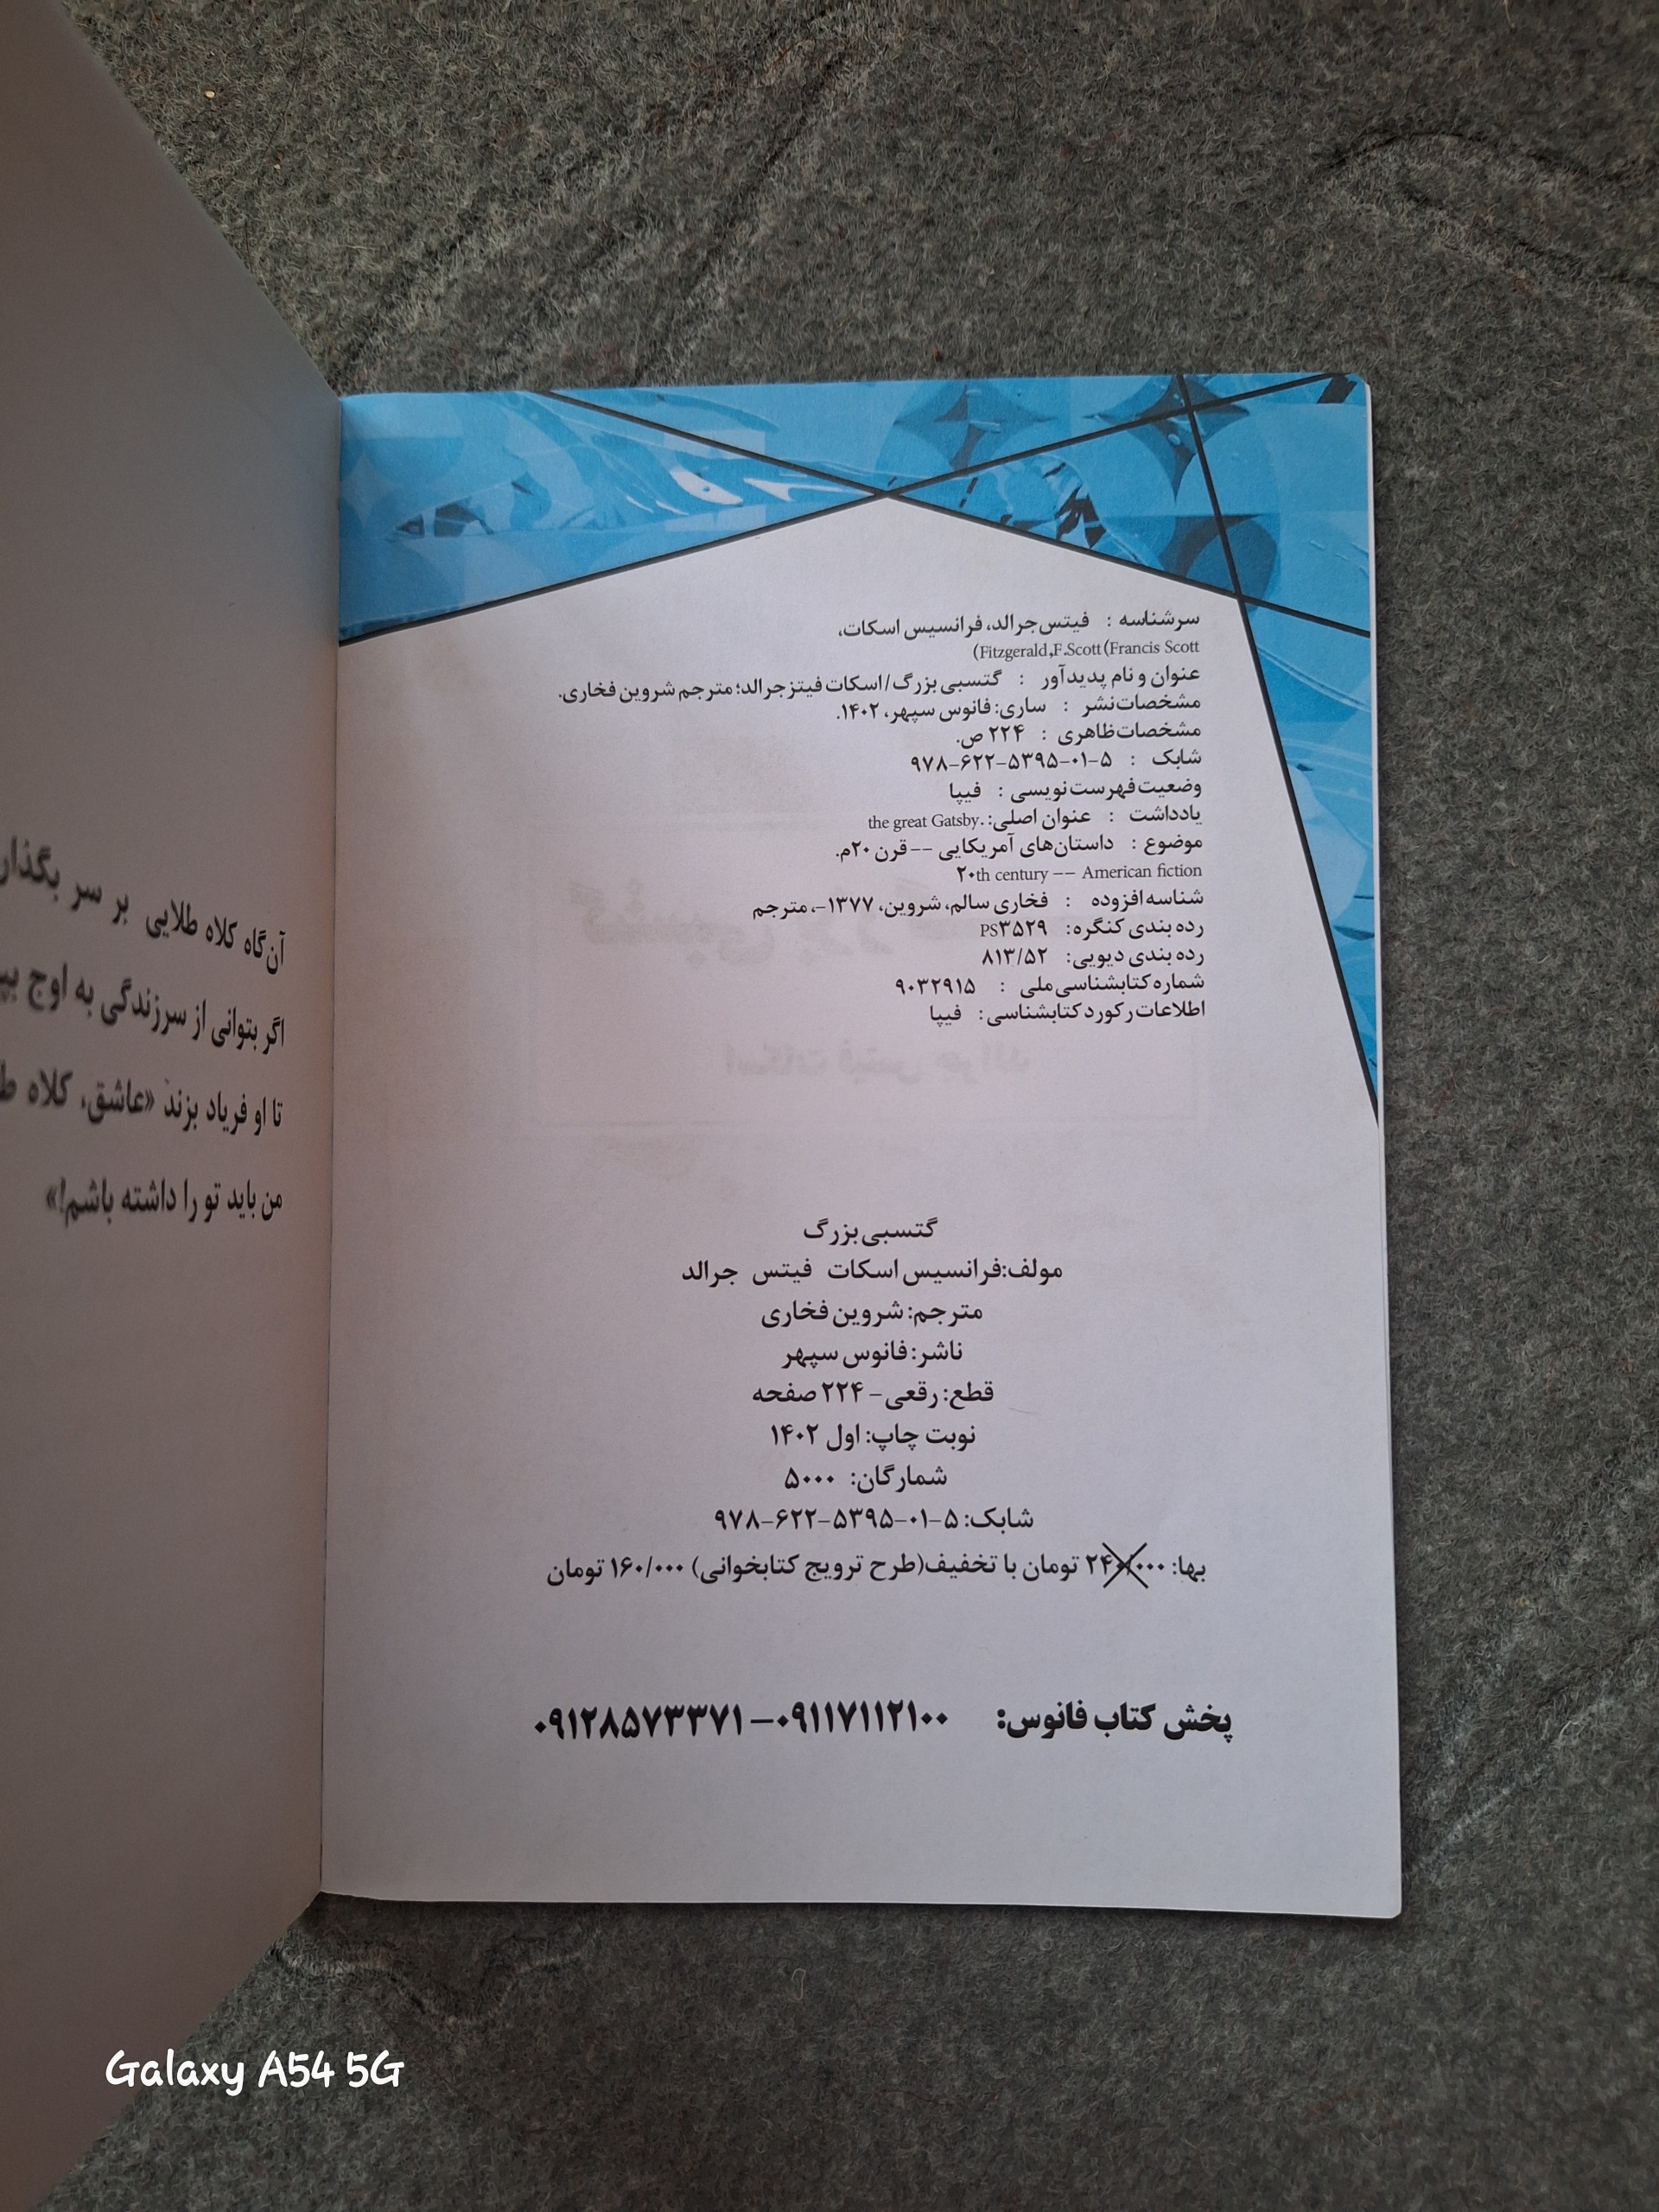 سرشناسه : فیتس‌جرالد، فرانسیس اسکات،
(Fitzgerald,F.Scott(Francis Scott
عنوان و نام پدیدآور : گتسبی بزرگ/ اسکات فیتزجرالد؛ مترجم شروین فخاری.
مشخصات نشر : ساری: فانوس سپهر، ۱۴۰۲.
مشخصات ظاهری : ۲۲۴ ص.
شابک : ۹۷۸-۶۲۲-۵۳۹۵-۰۱-۵
وضعیت فهرست نویسی : فیپا
یادداشت : عنوان اصلی: .the great Gatsby
موضوع : داستان‌های آمریکایی -- قرن ۲۰م.
۲۰th century -- American fiction
شناسه افزوده : فخاری سالم، شروین، ۱۳۷۷-، مترجم
رده بندی کنگره: PS۳۵۲۹
رده بندی دیویی: ۸۱۳/۵۲
شماره کتابشناسی ملی : ۹۰۳۲۹۱۵
اطلاعات رکورد کتابشناسی: فیپا
گتسبی بزرگ
مولف: فرانسیس اسکات فیتس جرالد
مترجم: شروین فخاری
ناشر: فانوس سپهر
قطع: رقعی - ۲۲۴ صفحه
نوبت چاپ: اول ۱۴۰۲
شمارگان: ۵۰۰۰
شابک: ۹۷۸-۶۲۲-۵۳۹۵-۰۱-۵
بها: ۲۴۰/۰۰۰ تومان با تخفیف(طرح ترویج کتابخوانی) ۱۶۰/۰۰۰ تومان
پخش کتاب فانوس: ۰۹۱۱۷۱۱۲۱۰۰-۰۹۱۲۸۵۷۳۳۷۱
آن‌گاه کلاه طلایی بر سر بگذار
اگر بتوانی از سرزندگی به اوج
تا او فریاد بزند «عاشق، کلاه
من باید تو را داشته باشم!»
Galaxy A54 5G